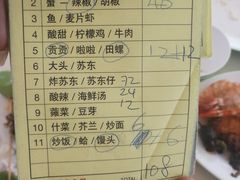 2 蟹 – 辣椒 / 胡椒 40
3 鱼 / 麦片虾
4 酸甜 / 柠檬鸡 / 牛肉
5 贡贡 / 啦啦 / 田螺 12+12
6 大头 / 苏东
7 炸苏东 / 苏东仔 72
8 酸辣 / 海鲜汤 24
9 蕹菜 / 豆芽 12
10 什菜 / 芥兰 / 炒面 6
11 炒饭 / 蛤 / 馒头 6
108
TOTAL